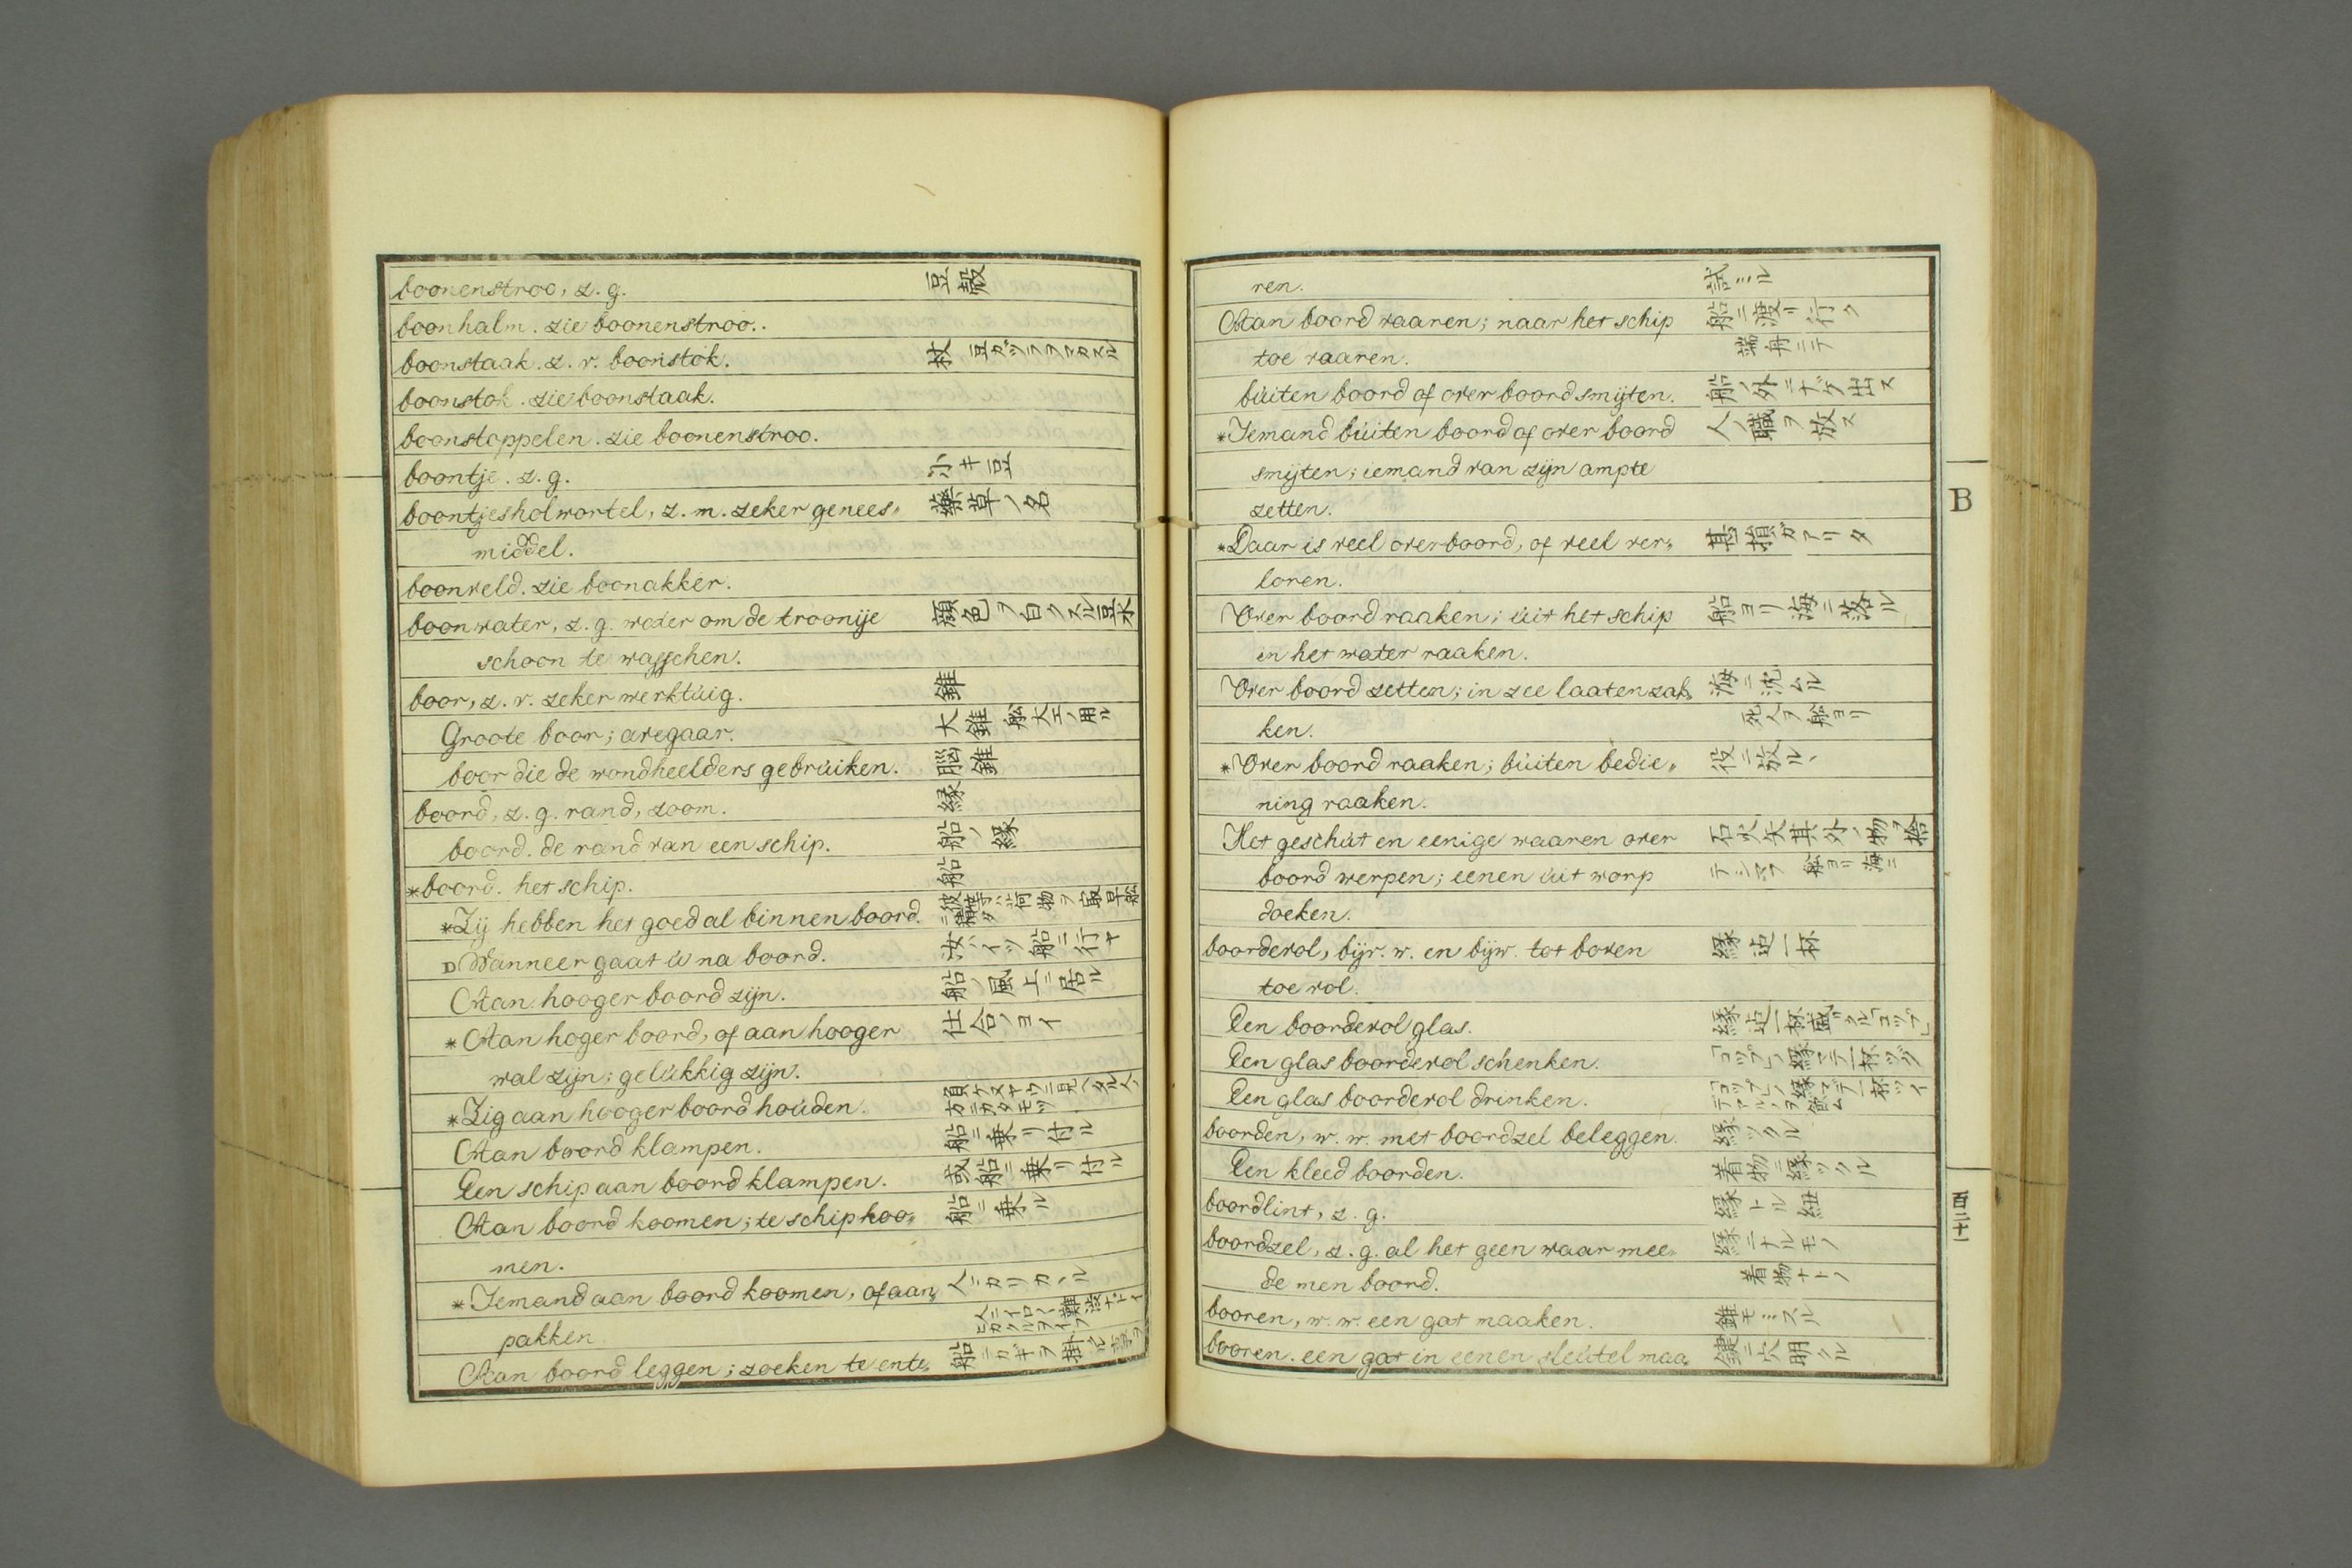 boonenstroo, z. g. 豆殻
boonhalm. zie boonenstroo.
boonstaak. z. v. boonstok. 杖 豆ガツラヲマカスル
boonstok. zie boonstaak.
boonstoppelen. zie boonenstroo.
boontje. z. g. 小キ豆
boontjesholwortel, z. m. zeker genees„ 藥草ノ名
middel.
boonveld. zie boonakker.
boonwater, z. g. water om de troonije 顔色ヲ白クスル豆水
schoon te wasschen.
boor, z. v. zeker werktúig. 錐
Groote boor; avegaar. 大錐 舩大工ノ用ル
boor die de wondheelders gebrúiken. 脳錐
boord, z. g. rand, zoom. 縁
boord. de rand van een schip. 船ノ縁
*boord. het schip. 船
*Zij hebben het goed al binnen boord.
D Wanneer gaat ú na boord. 汝ハイツ船ニ行ヤ
Aan hooger boord zijn. 船ノ風上ニ居ル
*Aan hoger boord, of aan hooger 仕合ノヨイ
wal zijn; gelúkkig zijn.
*Zig aan hooger boord hoúden.
Aan boord klampen. 船ニ乗リ付ル
Een schip aan boord klampen. 或船ニ乗リ付ル
Aan boord koomen; te schip koo„ 船ニ乗ル
men.
*Iemand aan boord koomen, of aan„ 人ニカリカヽル
pakken
Aan boord leggen; zoeken te ente„ 船ニカギヲ掛ル
ren. 試ミル
Aan boord vaaren; naar het schip 船ニ渡リ行ク
toe vaaren. 端舟ニテ
búiten boord of over boord smijten. 船ノ外ニナゲ出ス
*Iemand búiten boord of over boord 人ノ職ヲ放ス
smijten; iemand van zijn ampte
zetten.
*Daar is veel over boord, of veel ver„ 甚損ガアリタ
loren.
Over boord raaken; úit het schip 船ヨリ海ニ落ル
in het water raaken.
Over boord zetten; in zee laaten zak„ 海ニ沈ムル
ken. 死人ヲ船ヨリ
*Over boord raaken; búiten bedie„ 役ニ放ルヽ
ning raaken.
Het geschút en eenige waaren over 石火矢其外ノ物ヲ捨
boord werpen; eenen úit worp テシマフ 船ヨリ海ニ
doeken.
boordevol, bijv. w. en bijw. tot boven 縁迠一杯
toe vol.
Een boordevol glas. 縁迠一杯盛ツタル「コップ」
Een glas boordevol schenken. 「コップ」ノ縁マテ一杯ツグ
Een glas boordevol drinken. 「コップ」ノ縁マデ一杯ツイ
テアルノヲ飲ム
boorden, w. w. met boordzel beleggen. 縁ツクル
Een kleed boorden. 着物ニ縁ツクル
boordlint, z. g. 縁トル紐
boordzel, z. g. al het geen waar mee„ 縁ニナルモノ
de men boord. 着物ナトノ
booren, w. w. een gat maaken. 錐モミスル
booren. een gat in eenen sleútel maa„ 鍵ニ穴明クル
B
百二十一